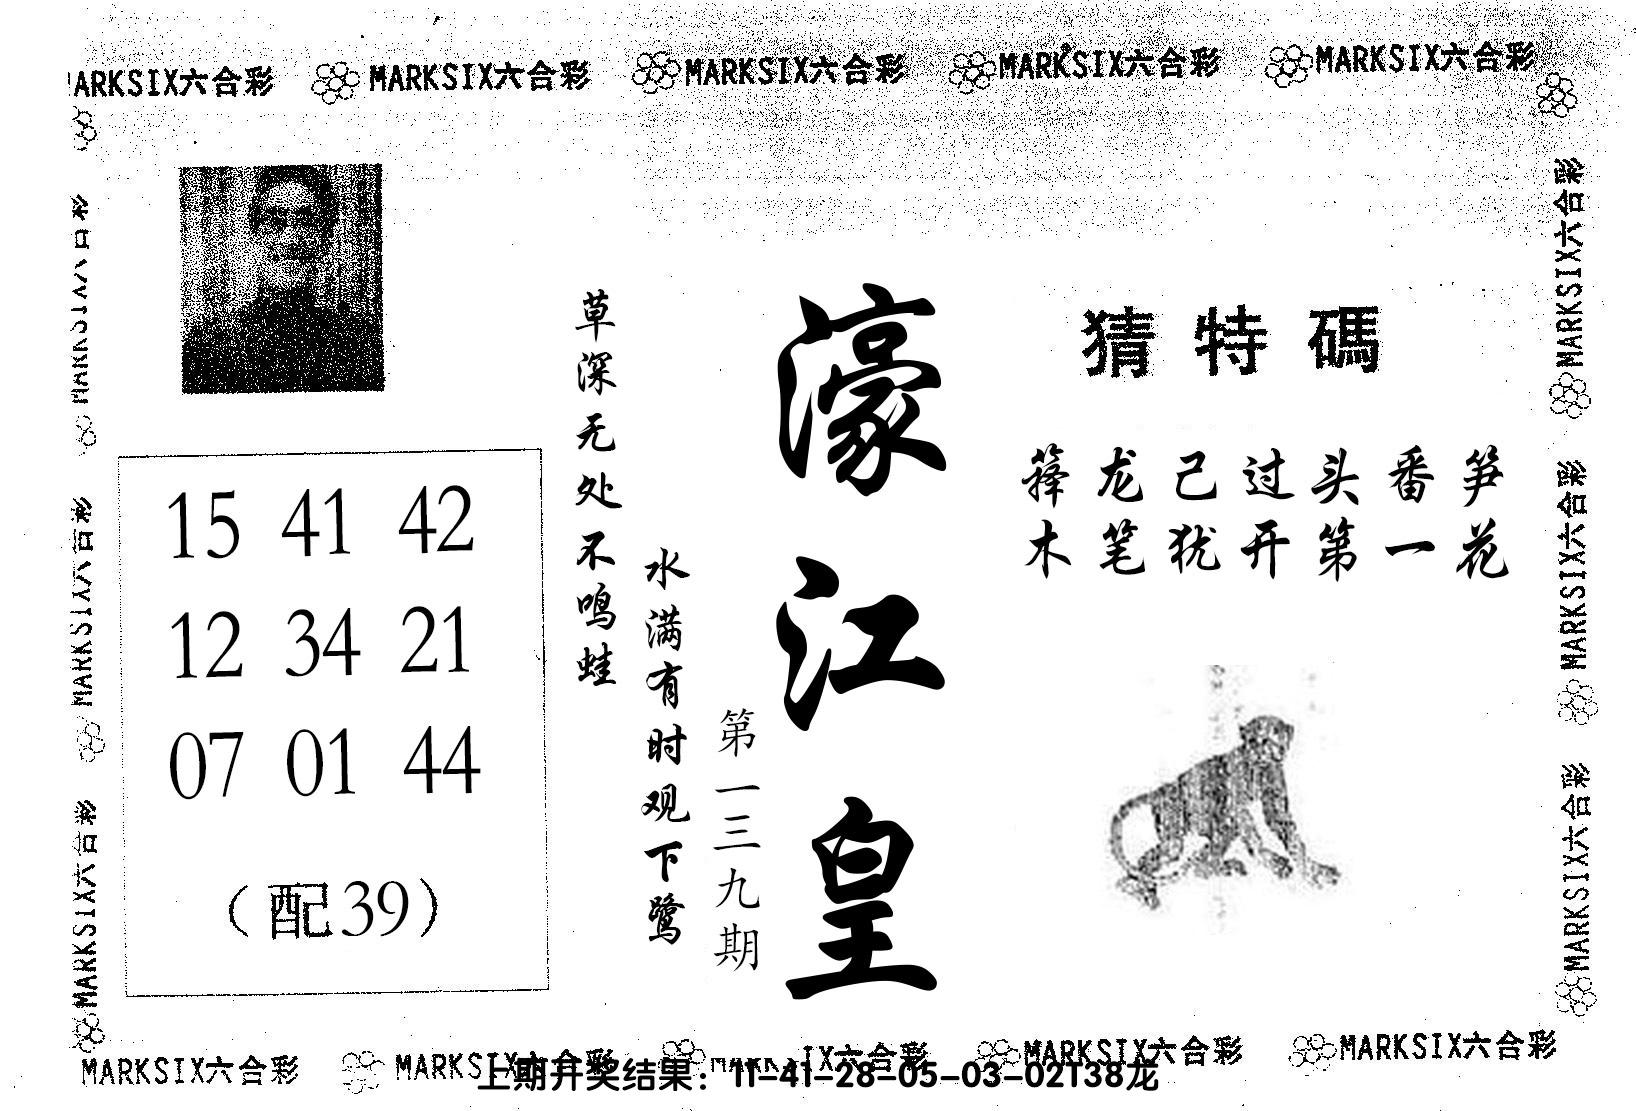 MARKSIX六合彩 MARKSIX六合彩 MARKSIX六合彩 MARKSIX六合彩 MARKSIX六合彩
猜特碼
箨龙己过头番笋
木笔犹开第一花
濠江皇
第一三九期
草深无处不鸣蛙
水满有时观下鹭
15 41 42
12 34 21
07 01 44
（配39）
MARKSIX六合彩
MARKSIX六合彩
MARKSIX六合彩
MARKSIX六合彩
MARKSIX六合彩
MARKSIX六合彩
MARKSIX六合彩 MARKSIX六合彩 MARKSIX六合彩 MARKSIX六合彩 MARKSIX六合彩
上期开奖结果：11-41-28-05-03-02T38龙